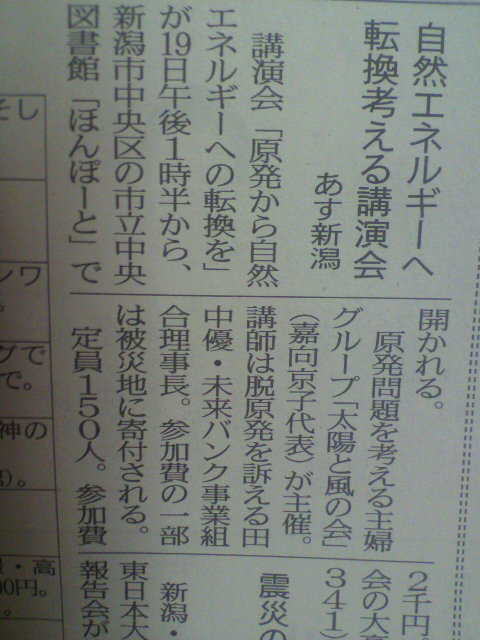 自然エネルギーへ
転換考える講演会
あす新潟
講演会「原発から自然
エネルギーへの転換を」
が19日午後1時半から、
新潟市中央区の市立中央
図書館「ほんぽーと」で
開かれる。
原発問題を考える主婦
グループ「太陽と風の会」
(嘉向京子代表)が主催。
講師は脱原発を訴える田
中優・未来バンク事業組
合理事長。参加費の一部
は被災地に寄付される。
定員150人。参加費
2千円
会の大
341)
震災の
新潟・
東日本大
報告会が
そし
ンワ
グで
で。
神の
・高
00円。